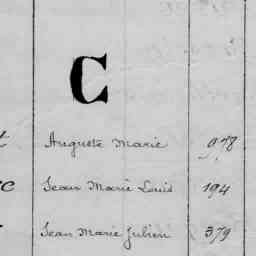 C
Auguste Marie 978
Jean Marie Louis 194
Jean Marie Julien 379